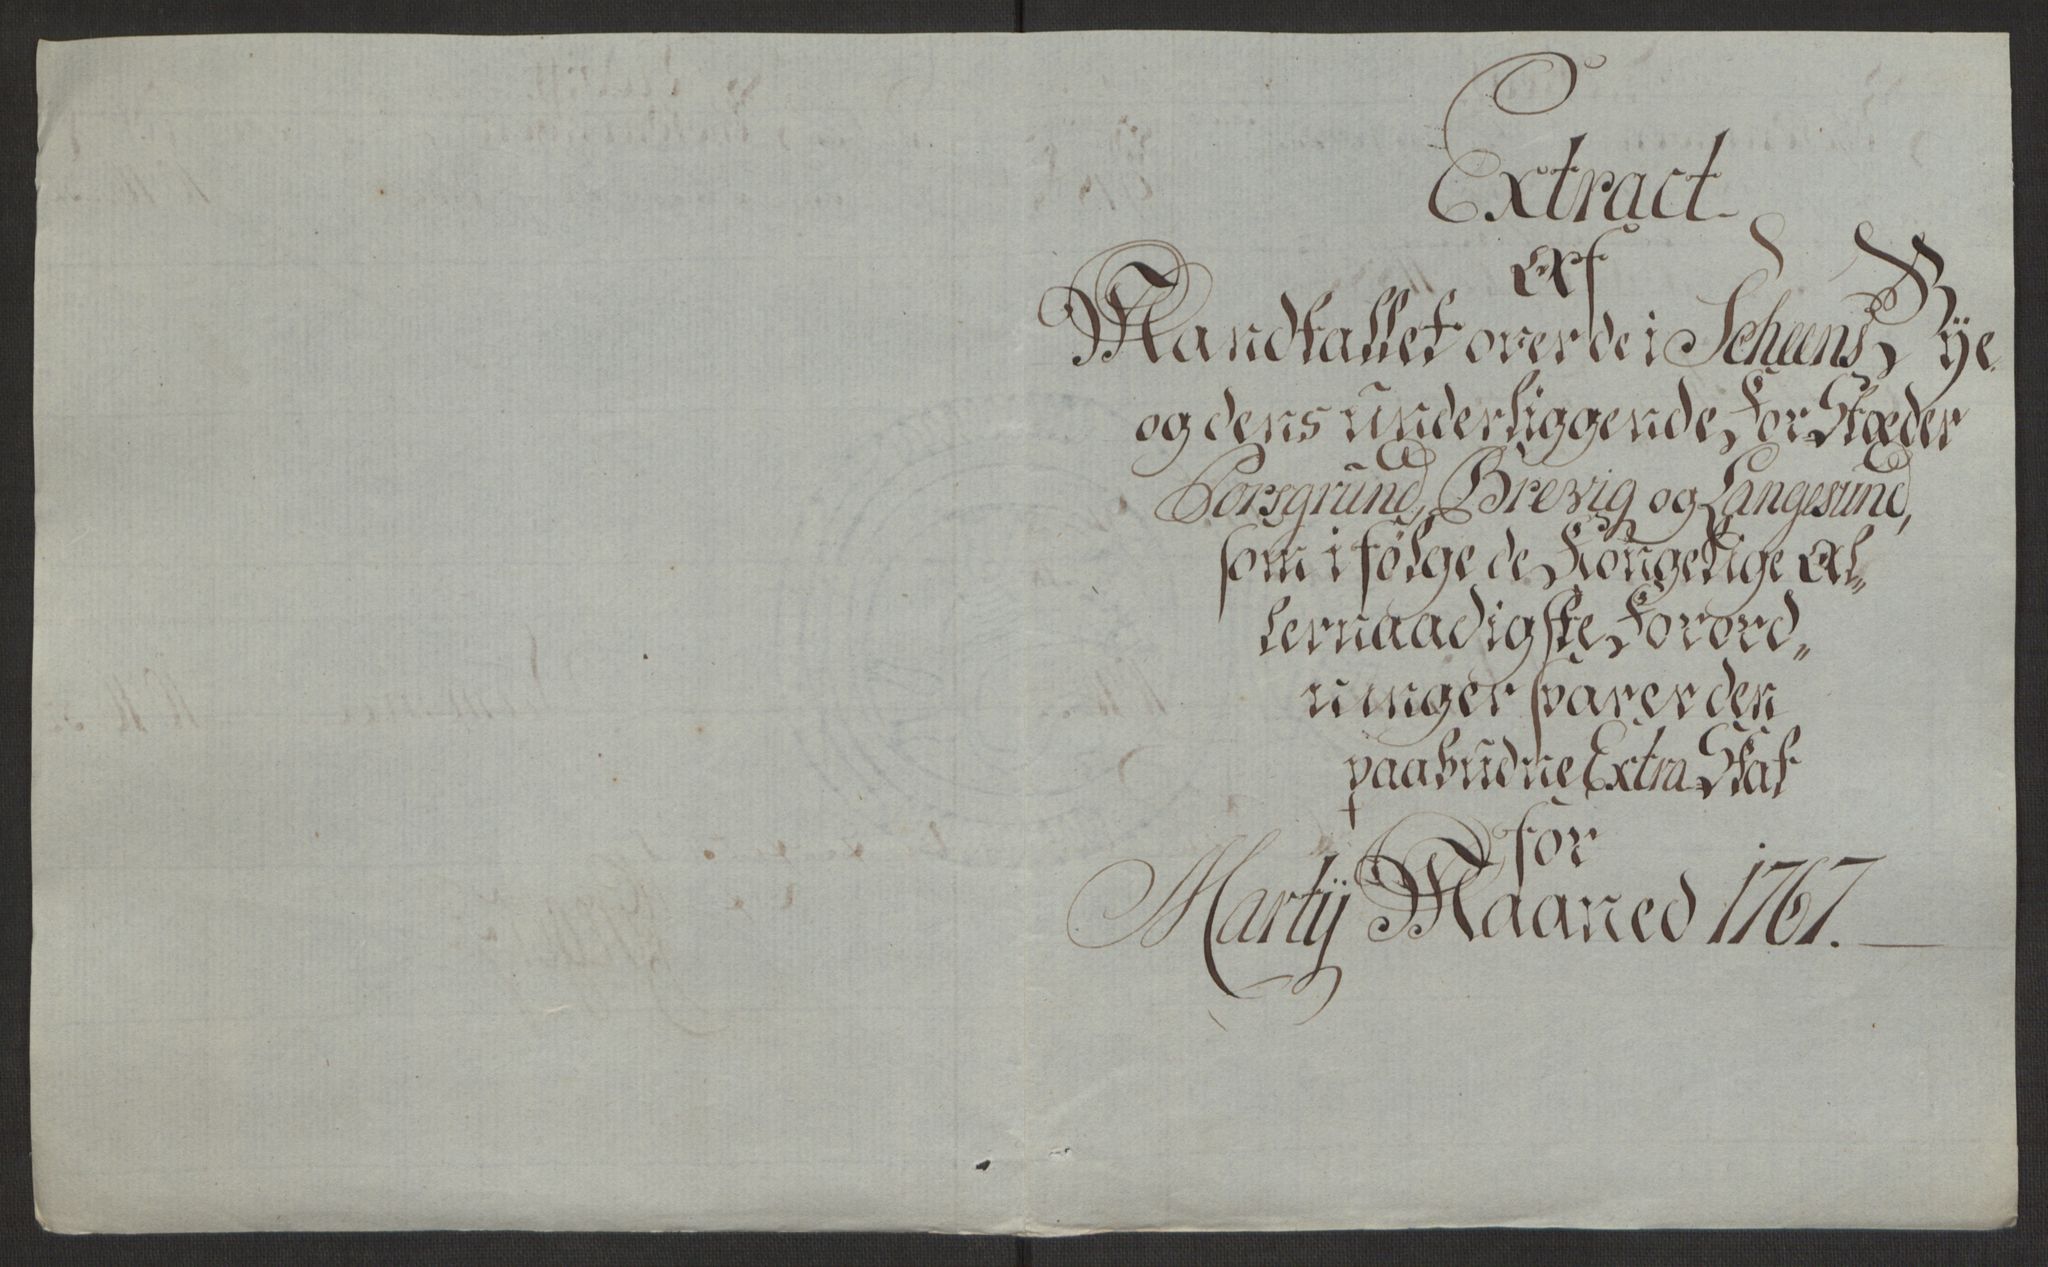 Extract
af
Mandtallet over de i Scheens Bÿe
og dens underliggende For Stæder
Porsgrund, Brevig og Langesund,
som i følge de Kongelige Al„
lernaadigste Forord„
ninger svarer den
paabudne Extra Skat
for
Martÿ Maaned 1767.